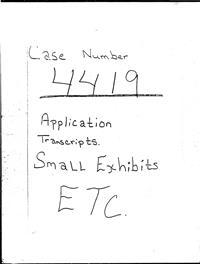 Case Number
4419
Application
Transcripts.
Small Exhibits
ETC.